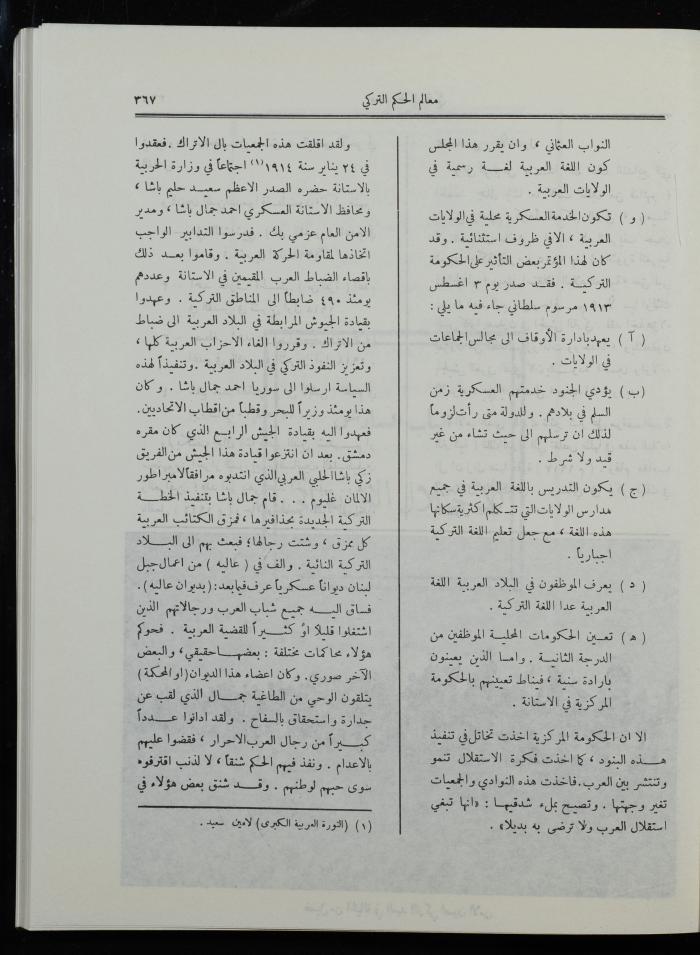 معالم الحكم التركي
٣٦٧
النواب العثماني ، وان يقرر هذا المجلس
كون اللغة العربية لغـــة رسمية في
الولايات العربية .
( و ) تكون الخدمة العسكرية محلية في الولايات
العربية ، الا في ظروف استثنائية . وقد
كان لهذا المؤتمر بعض التأثير على الحكومة
التركيـة . فقـد صدر يوم ٣ اغسطس
١٩١٣ مرسوم سلطاني جاء فيه ما يلي :
( آ ) يعهد بادارة الأوقاف الى مجالس الجماعات
في الولايات .
( ب ) يؤدي الجنود خدمتهم العسكرية زمن
السلم في بلادهم . وللدولة متى رأت لزوماً
لذلك ان ترسلهم الى حيث تشاء من غير
قيد ولا شرط .
( ج ) يكون التدريس باللغة العربية في جميع
مدارس الولايات التي تتـكلم اكثرية سكانها
هذه اللغة ، مع جعل تعليم اللغة التركية
اجبارياً .
( د ) يعرف الموظفون في البلاد العربية اللغة
العربية عدا اللغة التركية .
( ه ) تعـين الحكومات المحلية الموظفين من
الدرجة الثانيـة . وامـا الذين يعينون
بارادة سنية ، فيناط تعيينهم بالحكومة
المركزية في الاستانة .
الا ان الحكومة المركزية اخذت تخاتل في تنفيذ
هـــذه البنود ، كما اخذت فكرة الاستقلال تنمو
وتنتشر بين العرب . فاخذت هذه النوادي والجمعيات
تغير وجهتها . وتصيح بملء شدقيهـا : «انها تبغي
استقلال العرب ولا ترضى به بديلا» .
ولقد اقلقت هذه الجمعيات بال الاتراك . فعقدوا
في ٢٤ يناير سنة ١٩١٤(١) اجتماعاً في وزارة الحربية
بالاستانة حضره الصدر الاعظم سعيـد حليم باشا ،
ومحافظ الاستانة العسكري احمد جمال باشا ، ومدير
الامن العام عزمي بك . فدرسوا التدابير الواجب
اتخاذها لمقاومة الحركة العربية . وقاموا بعـد ذلك
باقصاء الضباط العرب المقيمين في الاستانة وعددهم
يومئذ ٤٩٠ ضابطاً الى المناطق التركية . وعهدوا
بقيادة الجيوش المرابطة في البلاد العربية الى ضباط
من الاتراك . وقرروا الغاء الاحزاب العربية كلها ،
وتعزيز النفوذ التركي في البلاد العربية . وتنفيذاً لهذه
السياسة ارسلوا الى سوريا احمد جمال باشا . وكان
هذا يومئذ وزيراً للبحر وقطباً من اقطاب الاتحاديين .
فعهدوا اليه بقيادة الجيش الرابـع الذي كان مقره
دمشق . بعد ان انتزعوا قيادة هذا الجيش من الفريق
زكي باشا الحلبي العربي الذي انتدبوه مرافقاً لامبراطور
الالمان غليوم . . . قام جمال باشا بتنفيذ الخطـة
التركية الجديدة بحذافيرها ، فمزق الكتائب العربية
كل ممزق ، وشتت رجالها؛ فبعث بهم الى البـلاد
التركية النائية . والف في ( عاليه ) من اعمال جبل
لبنان ديواناً عسكرياً عرف فيما بعد : ( بديوان عاليه ) .
فسـاق اليـــه جميـع شباب العرب ورجالاتهم الذين
اشتغلوا قليلاً او كثـــيراً للقضية العربية . فحوكم
هؤلاء محاكمات مختلفة : بعضهـا حقيقي ، والبعض
الآخر صوري . وكان اعضاء هذا الديوان ( او المحكمة )
يتلقون الوحي من الطاغية جمـــال الذي لقب عن
جدارة واستحقاق بالسفاح . ولقد ادانوا عـــدداً
كبـــيراً من رجال العرب الاحرار ، فقضوا عليهم
بالاعدام . ونفذ فيهم الحكم شنقاً ، لا لذنب اقترفوه
سوى حبهم لوطنهم . وقـــد شنق بعض هؤلاء في
(١) (الثورة العربية الكبرى) لامين سعيد .